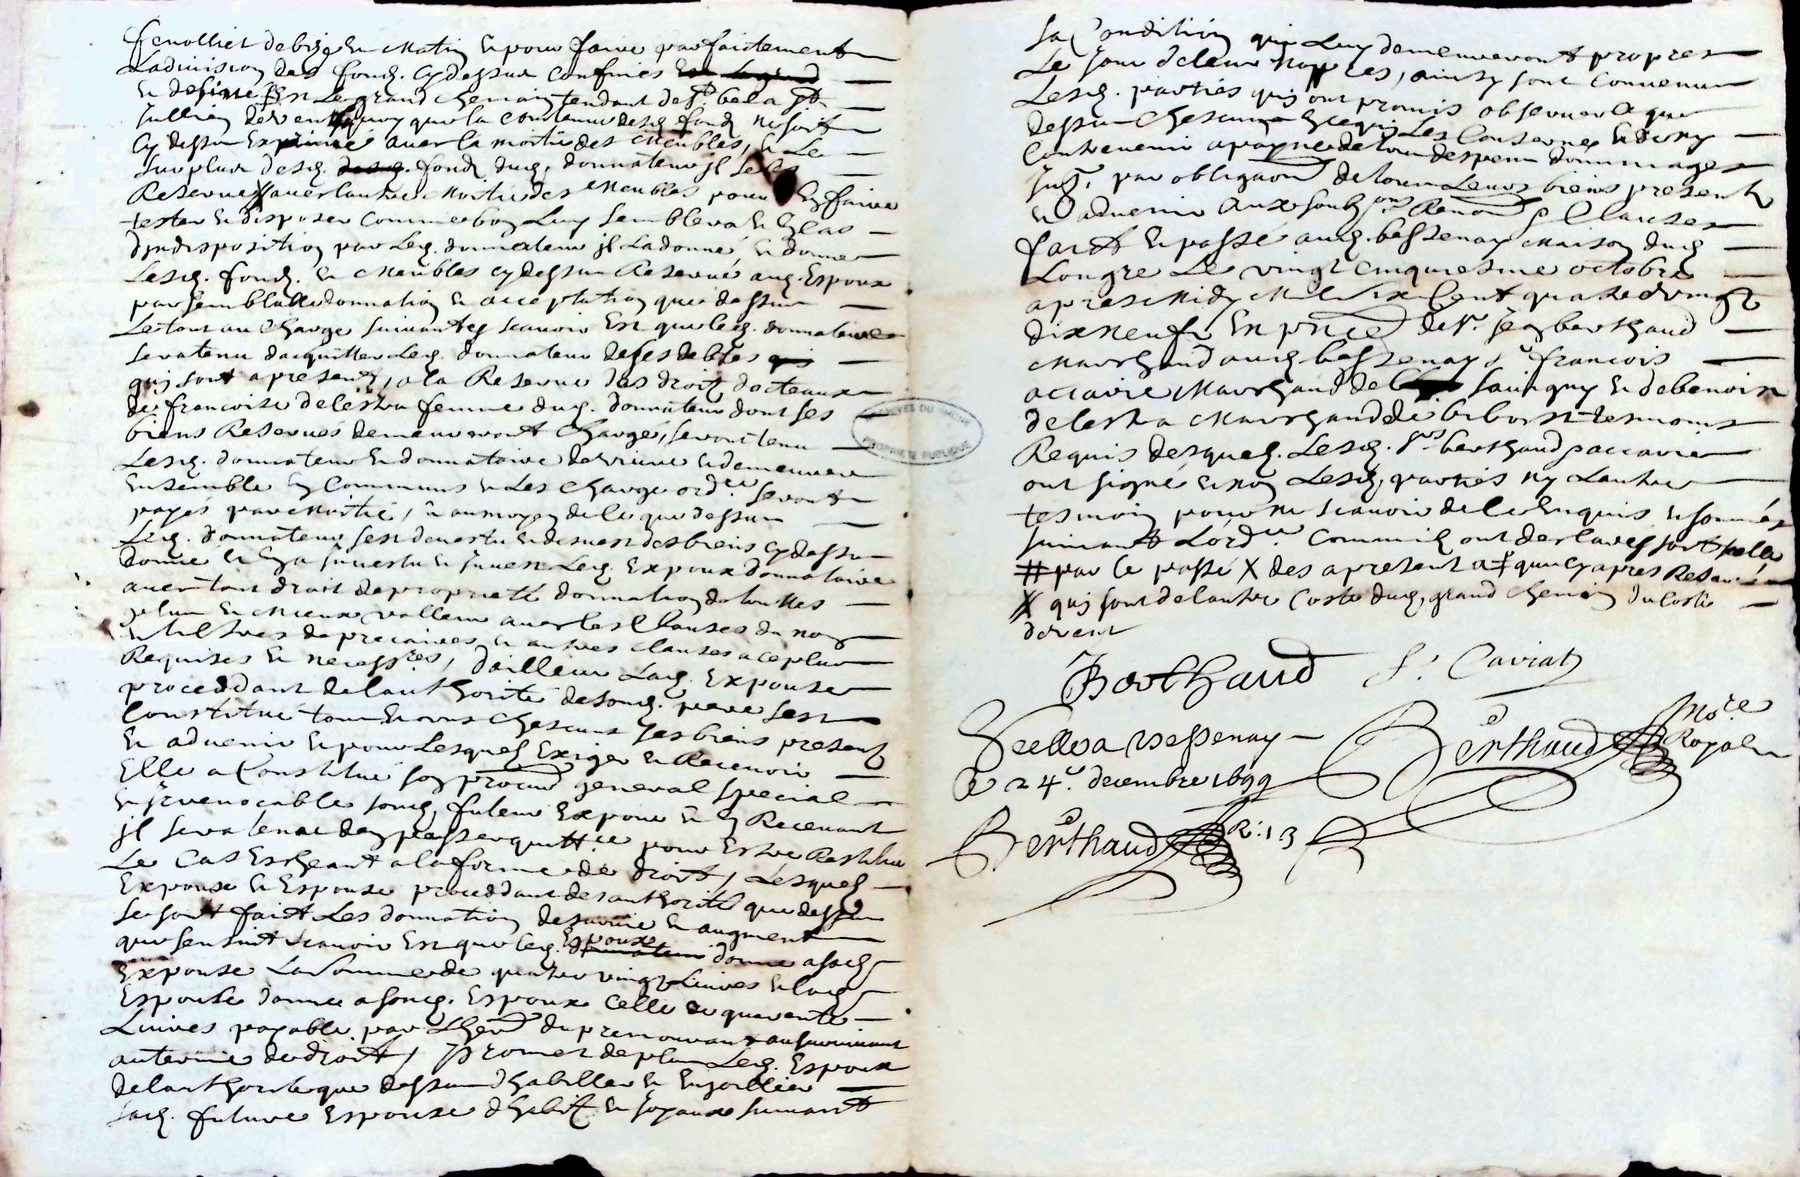 fenolliet de bize & matin & pour faire parfaictement
La division des fondz cy dessus confinés est le grand
& desire est le grand chemin tendant de st bel a st
Jullien quoy que la contenue desd. fondz ne soit
cy dessus exprimée avec la moitié des meubles, & Le
surplus desd. desd. fondz dud. donnateur il se les
Reserve avec lautre moitié des meubles pour En faire
tester & disposer comme bon Luy semblera & En cas
dindisposition par Led. donnateur il La donné, & donne
Lesd. fondz & meubles cy dessus Reservé aud. Espoux
par semblable donnation & acceptation que dessus
Le tout au charge suivantes scavoir Est que led. donnataire
sera tenu dacquitter Led. donnateur de ses debtes qui
qui sont a present, a la Reserve des droit docteaux
de francoise delestra femme dud. donnateur dont ses
biens Reservés demeureront chargé, seront tenu
Lesd. donnateur & donnataire de vivre & demeurer
Ensemble En Communs & Les charge ordre seront
payes par moitié, & au moyen de ce que dessus
Led. donnateur sest devestu & desmest des biens cy dessus
donné & En a investu & Led. Expoux donnataire
avec tout droit de proprieté donnation de touttes
plus & mieux valleur avec les Clauses du nom
& tiltres de precaires & autres clauses a ce plus
Requises & necessres, dailleur Lad. Expouse
proceddant de lauthorité de soud. pere sest
Constitué tous & uns chescuns ses biens presentz
& advenir & pour Lesquelz Exiger & Recevoir
Elle a Constitué son procur general special
& irrevocable soud. futeur Expoux & En Recevant
il sera tenu den passer quittce pour Estre Restitué
Le Cas Escheant a la forme de droit, Lesquelz
Expoux & Espouse proceddant de lauthorité que dessus
se sont faict Les donnation de survie & augment
que sensuit scavoir Est que led. Espoux donnateur donne a sad.
Expouse La Somme de quatre vingt Livres & lad.
Espouse donne a soud. Espoux celle de quarente
Livres payable par Lherit. du premourant au survivant
au terme de droit, promet de plus Led. Espoux
de lauthorité que dessus dhabiller & Enjoillier
sad. future Espouse dhabitz & joyaux suivant
sa Condition qui Luy demeureront propres
Le jour de leur nopces, ainsy sont convenu
Lesd. parties qui ont promis observer ce que
dessus chescung En ce qui Les Concerne & de ny
Contrevenir a payne de tous despens dommages
par obligaon de tous Leurs biens presentz
& advenir aux soubzons Renon & Clauses
faict & passé aud. bessenay maison dud.
Longre Le vingt cinquiesme octobre
apres Midy Mil Six Cent quatre vingt
dix neuf En pnce de sr Jean berthaud
Marchand aud. bessenay, sr francois
accarie Marchand de Savigny & de benoist
delestra Marchand de bibost tesmoins
Requis desquelz Lesd. srs berthaud & accarie
ont signé & non Lesd. parties ny Lautre
tesmoin pour ne scavoir de ce Enquis & sommés
suivant Lordce Comme ilz ont declares soit scellé
# par le passé X des a present a # que cy apres Reservé
X qui sont de lautre Costé dud. grand chemin du Costé
de vent
Berthaud
Scellé a Bessenay
Berthaud Nore Royal
Ce 24e decembre 1699
Berthaud R: 13
ARCHIVES DU RHONE
PROPRIETE PUBLIQUE